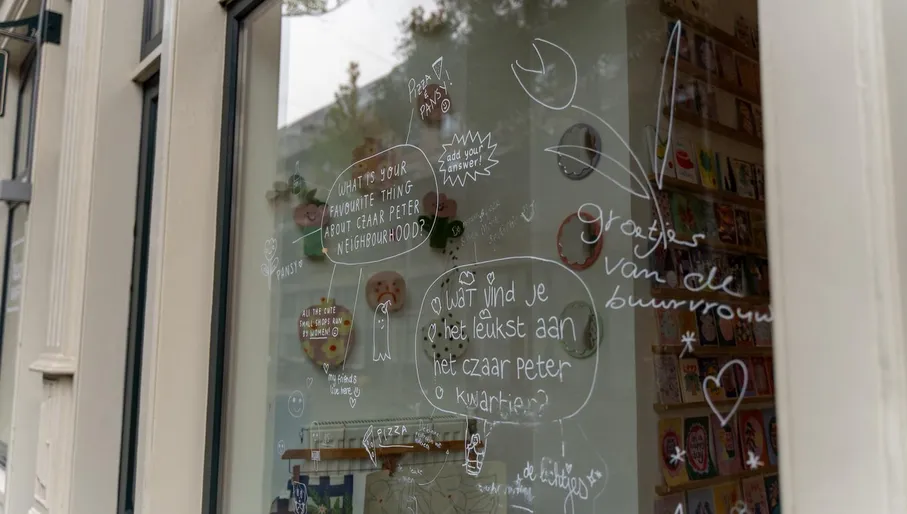 PIZZA
&
PANSY!
add your
answer!
WHAT IS YOUR
FAVOURITE THING
ABOUT CZAAR PETER
NEIGHBOURHOOD?
PANSY
groetjes
van de
buurvrouw
wat vind je
het leukst aan
het czaar Peter
kwartier?
ALL THE CUTE
SMALL SHOPS RUN
BY WOMEN!
my friends
live here
PIZZA
de lichtjes